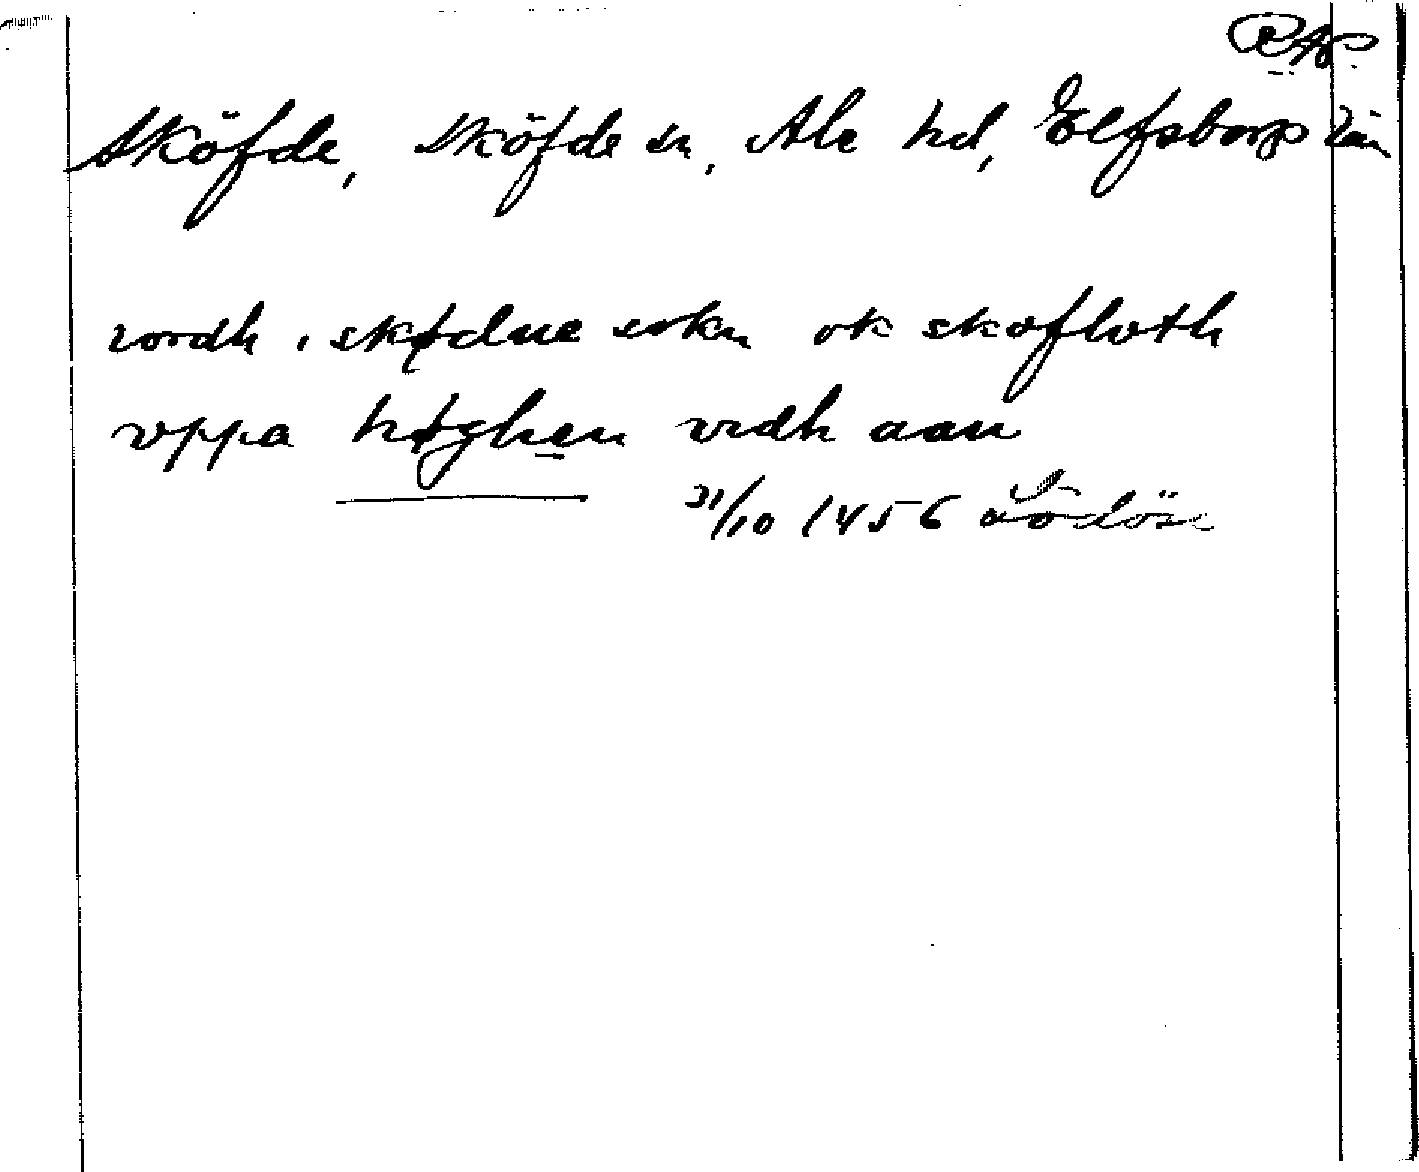 RAP
Sköfde, Sköfde sn, Ale hd, Elfsborgs län
iordh i skødue sokn ok skofloth
vppa høghen vidh aan
31/10 1456 Lödöse